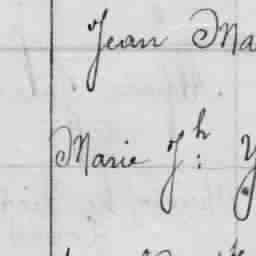 Jean Ma
Marie Jh: